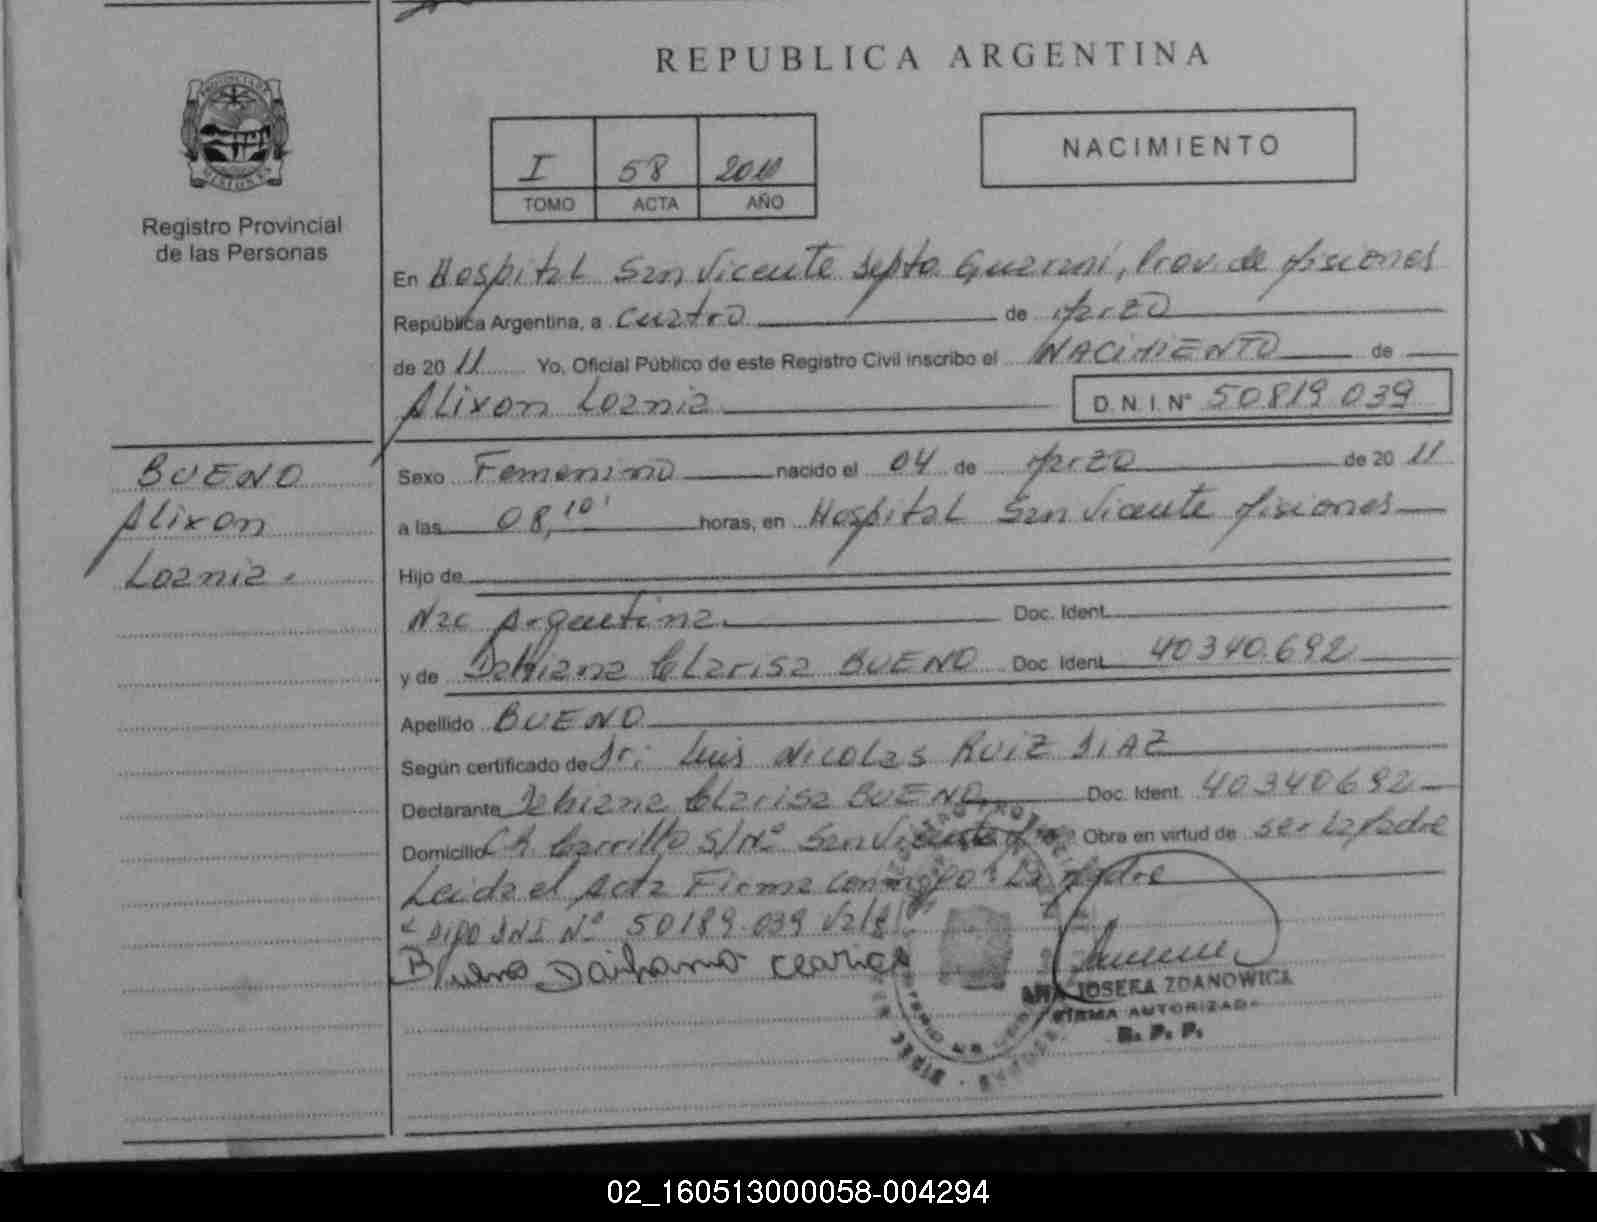 REPUBLICA ARGENTINA
I 58 2011
TOMO ACTA AÑO
NACIMIENTO
PROVINCIA DE MISIONES
Registro Provincial
de las Personas
En Hospital San Vicente Dpto Guaraní, Prov. de Misiones
República Argentina, a Cuatro de Marzo
de 2011 Yo, Oficial Público de este Registro Civil inscribo el NACIMIENTO de
Alixon Loania D.N.I. Nº 50819 039
BUENO
Alixon
Loania.
Sexo Femenino nacido el 04 de Marzo de 2011
a las 08,10' horas, en Hospital San Vicente Misiones
Hijo de
Nac Argentina. Doc. Ident.
y de Clarisa BUENO Doc. Ident. 40340.692
Apellido BUENO
Según certificado de Dr: Luis Nicolas RUIZ DIAZ
Declarante Clarisa BUENO Doc. Ident. 40340692
Domicilio Ch. Carrillo S/Nº San Vicente Obra en virtud de ser la Madre
Leida el Acta Firma conmigo La Madre
DNI Nº 50189.039 Vale
Bueno
JOSEFA ZDANOWICZ
FIRMA AUTORIZADA
R. P. P.
02_160513000058-004294